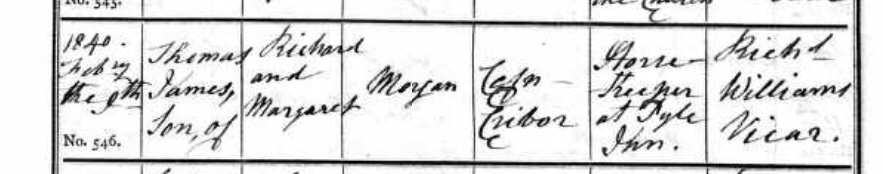 No. 545.
the Church
1840.
Feby
the 9th
No. 546.
Thomas
James,
Son, of
Richard
and
Margaret
Morgan
Cefn
Cribor
Horse
Keeper
at Pyle
Inn.
Richd
Williams
Vicar.